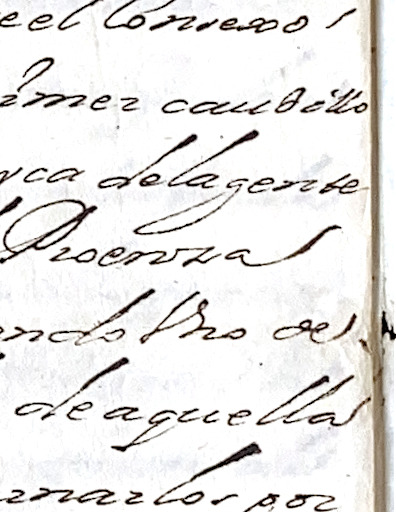 e el Consexo
imer caudillo
uca delagente
Proensa
ndo dho de
de aquella
rnarlos por